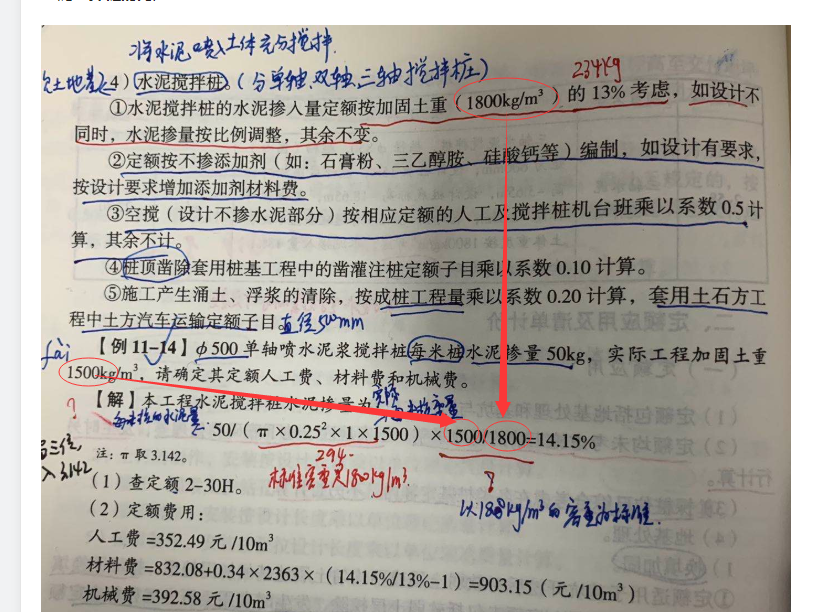 将水泥喷入土体充分搅拌
4）水泥搅拌桩。（分单轴、双轴、三轴搅拌桩）
234kg
①水泥搅拌桩的水泥掺入量定额按加固土重（1800kg/m³）的 13% 考虑，如设计不
同时，水泥掺量按比例调整，其余不变。
②定额按不掺添加剂（如：石膏粉、三乙醇胺、硅酸钙等）编制，如设计有要求，
按设计要求增加添加剂材料费。
③空搅（设计不掺水泥部分）按相应定额的人工及搅拌桩机台班乘以系数 0.5 计
算，其余不计。
④桩顶凿除套用桩基工程中的凿灌注桩定额子目乘以系数 0.10 计算。
⑤施工产生涌土、浮浆的清除，按成桩工程量乘以系数 0.20 计算，套用土石方工
程中土方汽车运输定额子目。直径500mm
【例 11-14】φ500 单轴喷水泥浆搅拌桩每米桩水泥掺量 50kg，实际工程加固土重
1500kg/m³，请确定其定额人工费、材料费和机械费。
【解】本工程水泥搅拌桩水泥掺量为
？
50/（π×0.25²×1×1500）×1500/1800=14.15%
注：π 取 3.142。
294
标准容重是1800kg/m³.
？
（1）查定额 2-30H。
以1800kg/m³的容重为标准.
（2）定额费用：
人工费 =352.49 元 /10m³
材料费 =832.08+0.34×2363×（14.15%/13%-1）=903.15（元 /10m³）
机械费 =392.58 元 /10m³